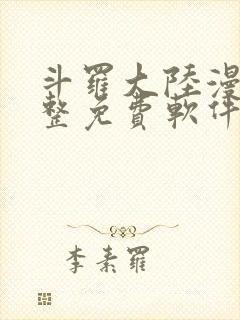 斗羅大陸漫
整免費軟件
李素羅